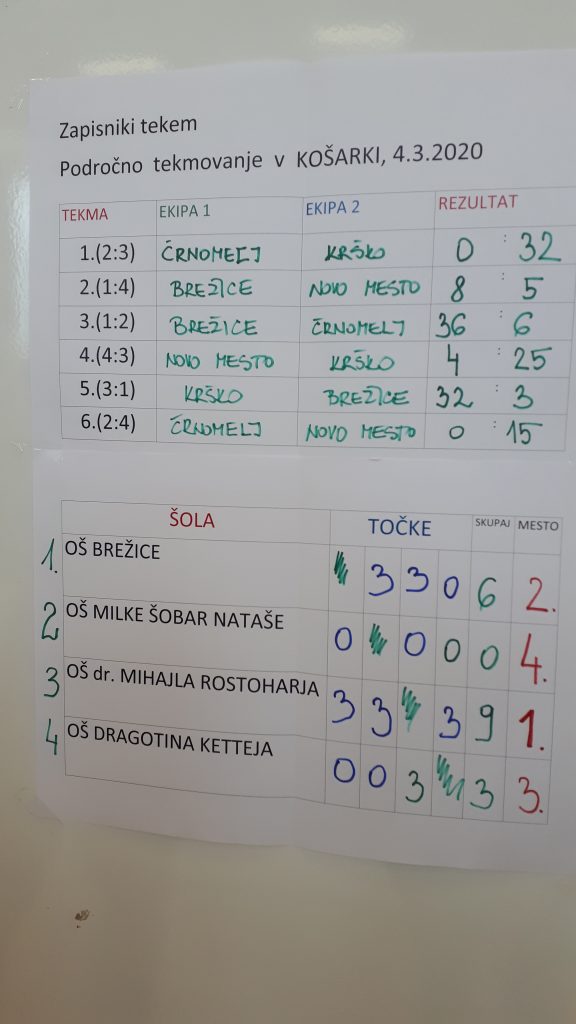 Zapisniki tekem
Področno tekmovanje v KOŠARKI, 4.3.2020
TEKMA EKIPA 1 EKIPA 2 REZULTAT
1.(2:3) ČRNOMELJ KRŠKO 0 : 32
2.(1:4) BREŽICE NOVO MESTO 8 : 5
3.(1:2) BREŽICE ČRNOMELJ 36 : 6
4.(4:3) NOVO MESTO KRŠKO 4 : 25
5.(3:1) KRŠKO BREŽICE 32 : 3
6.(2:4) ČRNOMELJ NOVO MESTO 0 : 15
ŠOLA TOČKE SKUPAJ MESTO
1. OŠ BREŽICE 3 3 0 6 2.
2 OŠ MILKE ŠOBAR NATAŠE 0 0 0 0 4.
3 OŠ dr. MIHAJLA ROSTOHARJA 3 3 3 9 1.
4 OŠ DRAGOTINA KETTEJA 0 0 3 3 3.